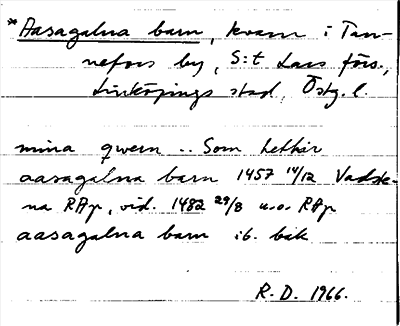 *Aasagalna barn, kvarn i Tan-
nefors by, S:t Lars förs.,
Linköpings stad, Östg. l.
mina qwern .. Som hethir
aasagalna barn 1457 14/12 Vadste-
na RAp, vid. 1482 29/8 u.o. RAp
aasagalna barn ib. bak
R. D. 1966.